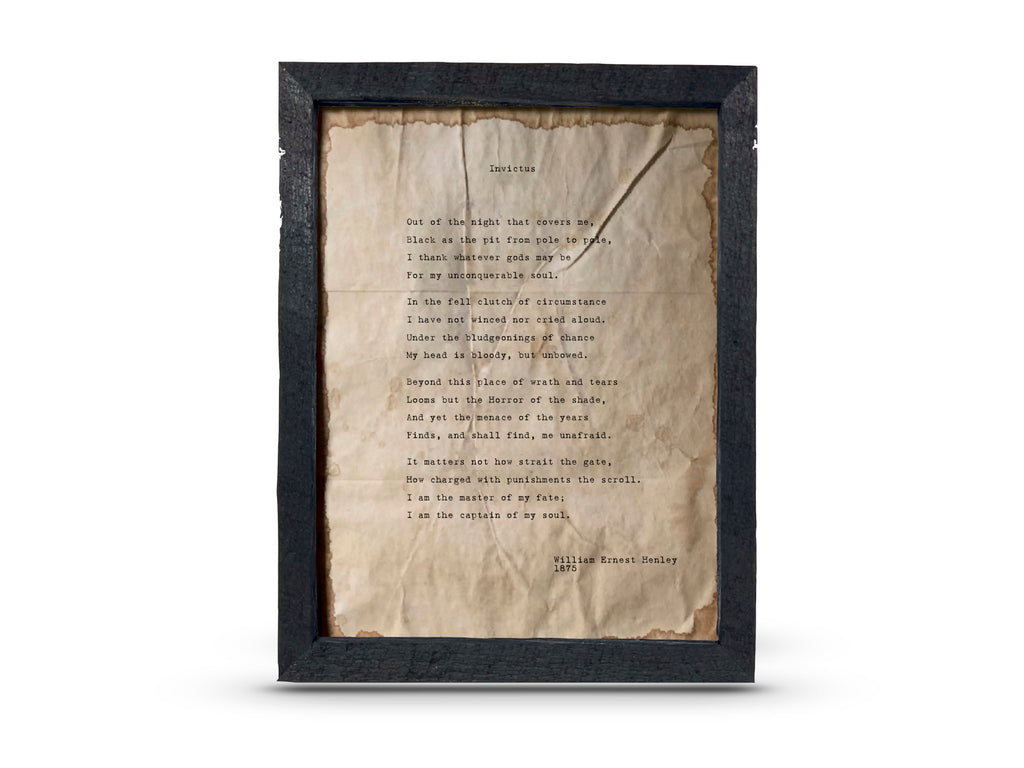 Invictus
Out of the night that covers me,
Black as the pit from pole to pole,
I thank whatever gods may be
For my unconquerable soul.
In the fell clutch of circumstance
I have not winced nor cried aloud.
Under the bludgeonings of chance
My head is bloody, but unbowed.
Beyond this place of wrath and tears
Looms but the Horror of the shade,
And yet the menace of the years
Finds, and shall find, me unafraid.
It matters not how strait the gate,
How charged with punishments the scroll.
I am the master of my fate;
I am the captain of my soul.
William Ernest Henley
1875